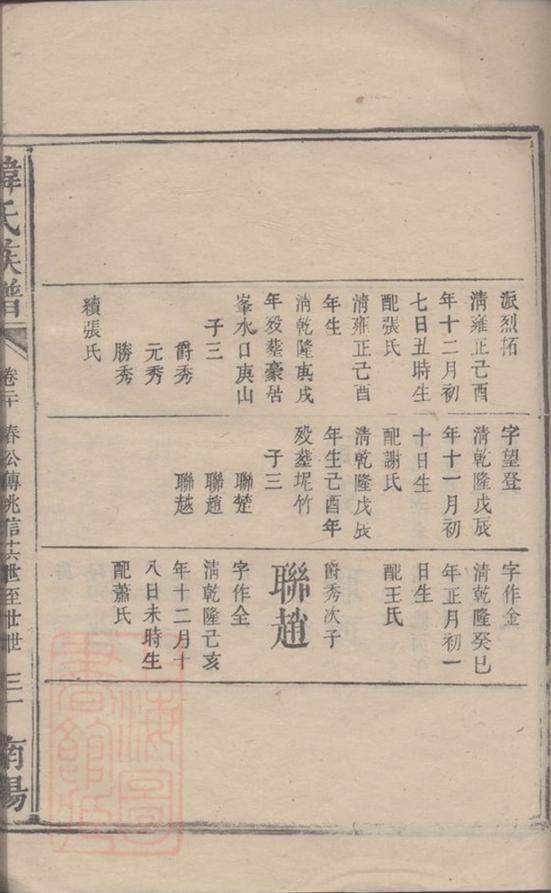 派烈拓
清雍正己酉
年十二月初
七日丑時生
配張氏
清雍正己酉
年生
清乾隆庚戌
年殁塟豪居
峯水口庚山
子三
爵秀
元秀
勝秀
續張氏
字望登
清乾隆戊辰
年十一月初
十日生
配謝氏
清乾隆戊辰
年生己酉年
殁塟坭竹
子三
聯楚
聯趙
聯越
字作金
清乾隆癸巳
年正月初一
日生
配王氏
爵秀次子
聯趙
字作全
清乾隆己亥
年十二月十
八日未時生
配蕭氏
韓氏族譜
卷二十
春公傳兆信
世至世世
三一
南陽